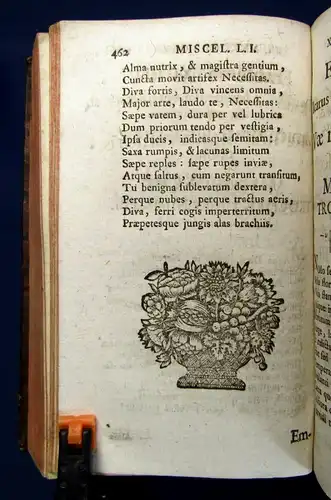 462 MISCEL. L. I.
Alma nutrix, & magistra gentium,
Cuncta movit artifex Necessitas.
Diva fortis, Diva vincens omnia,
Major arte, laudo te, Necessitas:
Sæpe vatem, dura per vel lubrica
Dum priorum tendo per vestigia,
Ipsa ducis, indicasque semitam:
Saxa rumpis, & lacunas limitum
Sæpe reples: sæpe rupes inviæ,
Atque saltus, cum negarunt transitum,
Tu benigna sublevatum dextera,
Perque nubes, perque tractus aeris,
Diva, ferri cogis imperterritum,
Præpetesque jungis alas brachiis.
Em-